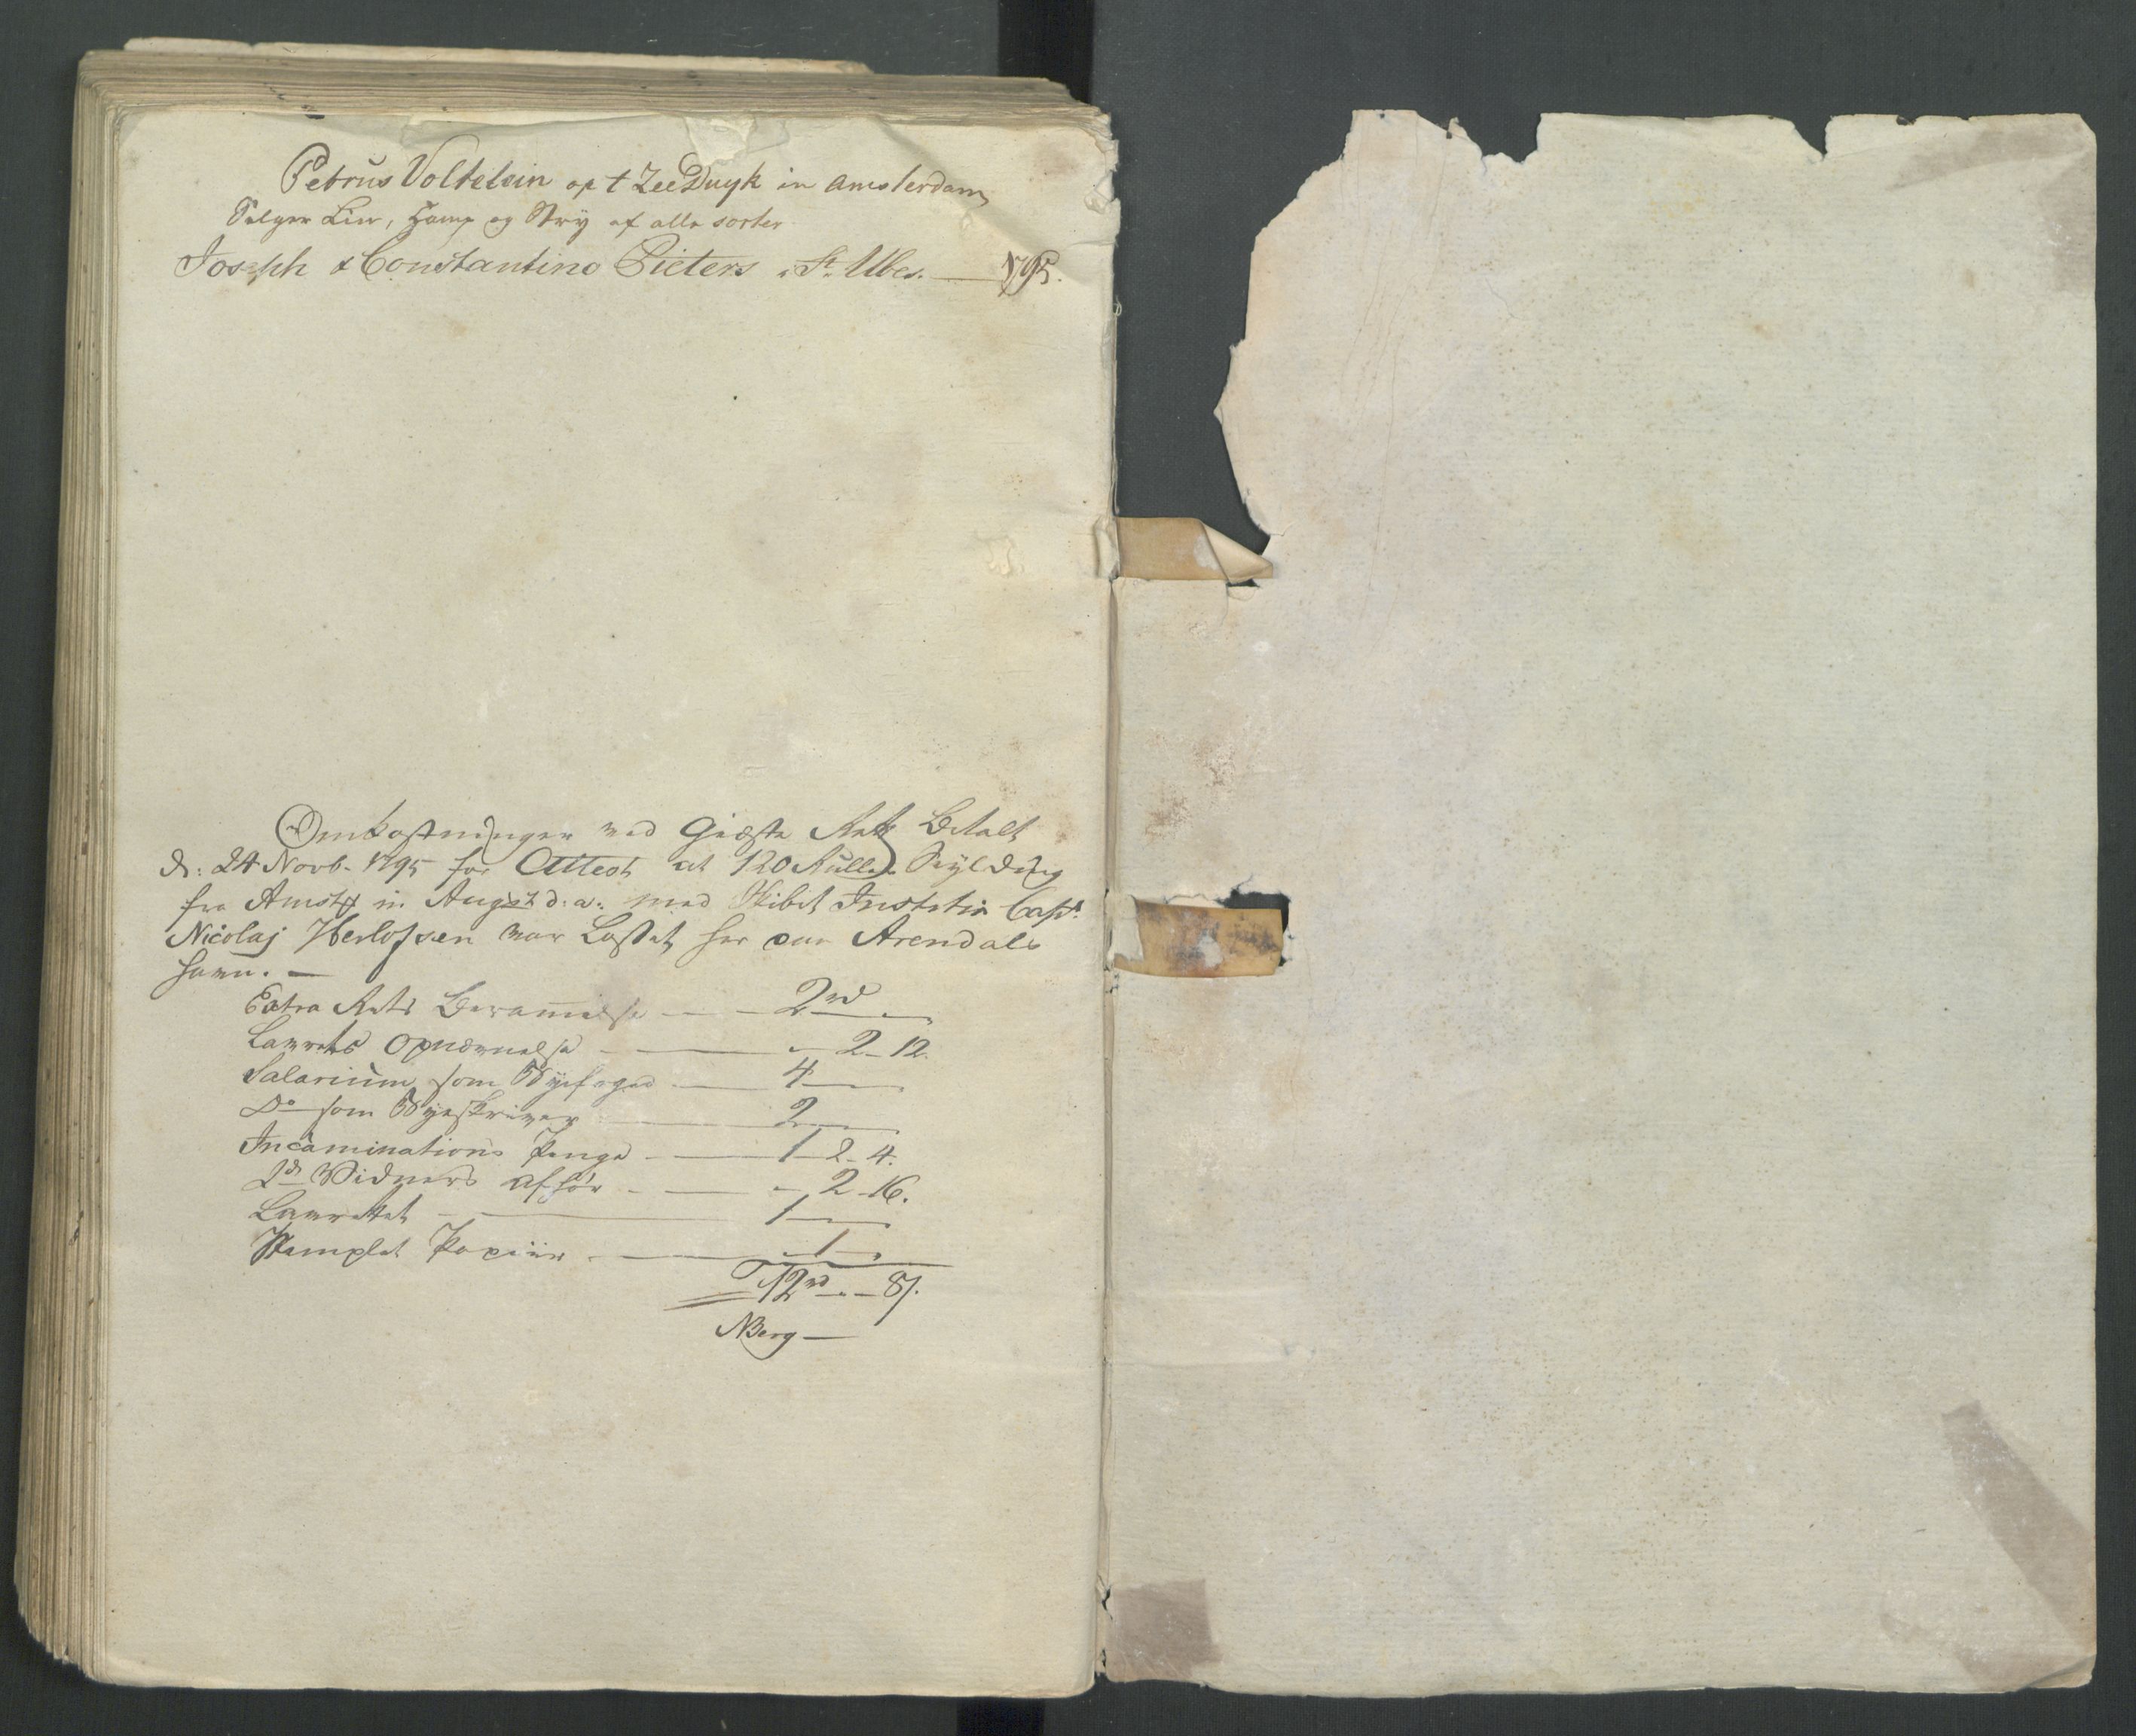 Petrus Voltelein op t ZeeDuyk in Amsterdam
Selger Liin, Hamp og Stry af alle sorter
Joseph & Constantino Pieters i St. Ubes. — 1795.
Omkostninger ved Gieste Rett Betalt
d: 24 Novb. 1795 for Attest at 120 Rulle. Seyldug
fra Amstd in Augst d: a: med Skibet Capt.
Nicolaj Herlofsen var Lostet her paa Arendals
havn. —
Extra Rets Berammelse — — 2 rd
Laurets Opnævnelse — — " 2 - 12.
Salarium som Byefoged — 4 —
Do som Byeskriver — 2 —
Incaminations Penge — 1 - 2 - 4.
2de Widners afhør — — " 2 - 16.
Laurettet — — 1 —
Stemplet Papiir — — " 1 —
12 rd " — 8/.
NBerg —